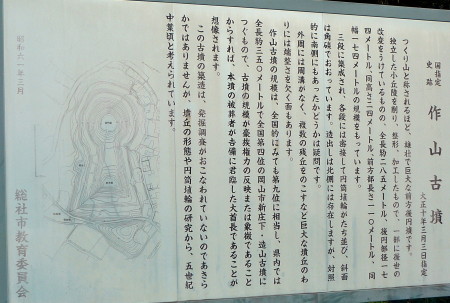 国指定
史跡
作山古墳
大正十年三月三日指定
つくり山と称されるほど、雄壮で巨大な前方後円墳です。
独立した小丘陵を削り、整形、加工したもので、一部に後世の
改変をうけているものの、全長約二八五メートル、後円部径一七
四メートル、同高さ二四メートル、前方部長さ一一〇メートル、同
幅一七四メートルの規模をもっています。
三段に築成され、各段には密接して円筒埴輪がたち並び、斜面
は角礫でおおっています。造出しは北側には存在しますが、対照
的に南側にもあったかどうかは疑問です。
外周には周溝がなく、複数の残丘をのこすなど巨大な墳丘のわ
りには端整さを欠く面もあります。
古墳の規模は、全国的にみても第九位に相当し、県内では
全長約三五〇メートルで全国第四位の岡山市新庄下・造山古墳に
つぐもので、古墳の規模が豪族権力の反映または象徴であること
からすれば、本墳の被葬者が吉備に君臨した大首長であることが
想像されます。
この古墳の築造は、発掘調査がおこなわれていないのであきら
かではありませんが、墳丘の形態や円筒埴輪の研究から、五世紀
中葉頃と考えられています。
昭和六一年三月
総社市教育委員会